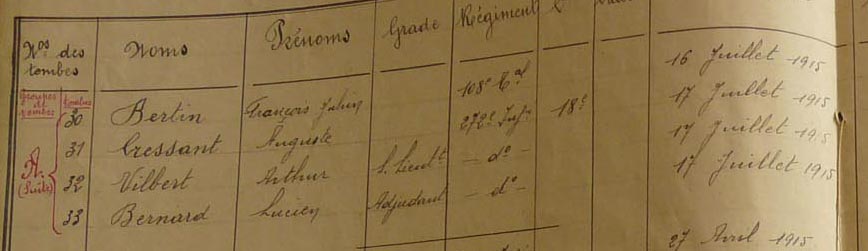 Nos des tombes Noms Prénoms Grade Régiment
Groupes de tombes Tombes
A (Suite)
30 Bertin François Julien 108e Ral 16 Juillet 1915
31 Cressant Auguste 272e Infie 18e 17 Juillet 1915
32 Vilbert Arthur S. Lieutt - do - 17 Juillet 1915
33 Bernard Lucien Adjudant - do - 17 Juillet 1915
27 Avril 1915